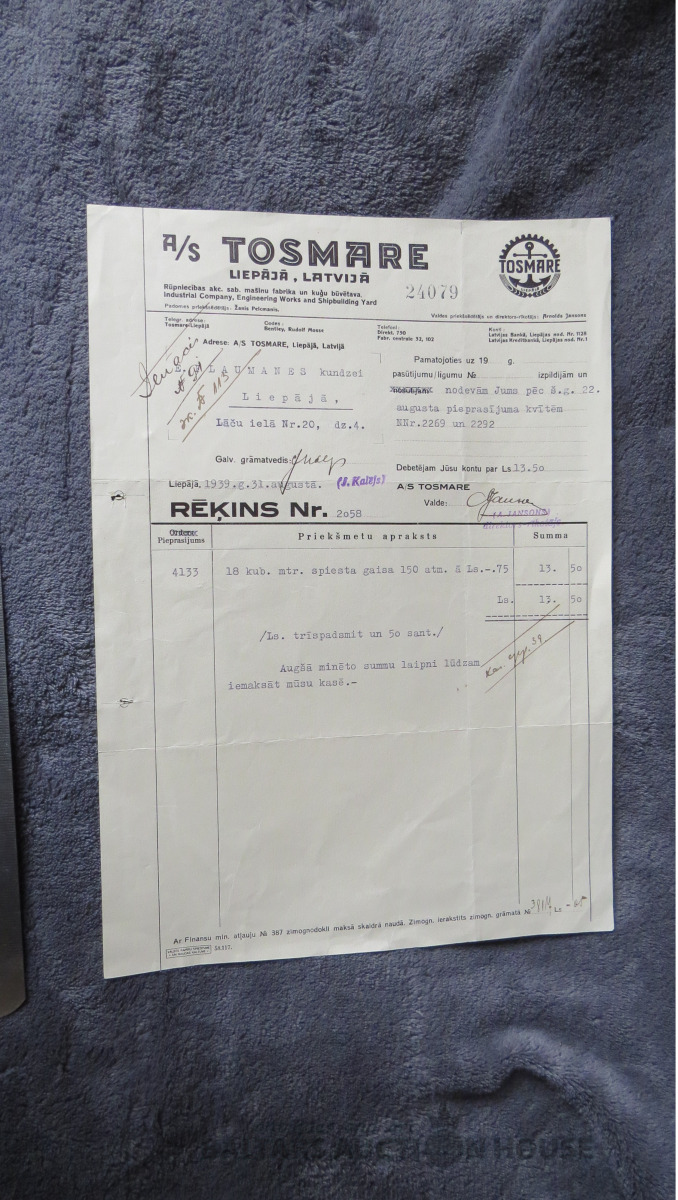 A/S TOSMARE
LIEPĀJĀ, LATVIJĀ
Rūpniecības akc. sab. mašīnu fabrika un kuģu būvētava.
Industrial Company, Engineering Works and Shipbuilding Yard
24079
TOSMARE
LIEPĀJĀ
Padomes priekšsēdētājs: Žanis Pelcmanis.
Valdes priekšsēdētājs un direktors-rīkotājs: Arnolds Jansons
Telegr. adrese:
Tosmare-Liepājā
Codes:
Bentley, Rudolf Mosse
Telefoni:
Direkt. 750
Fabr. centrale 52, 102
Konti:
Latvijas Bankā, Liepājas nod. Nr. 1128
Latvijas Kreditbankā, Liepājas nod. Nr. 1
Adrese: A/S TOSMARE, Liepājā, Latvijā
LAUMANES kundzei
Liepājā,
Lāču ielā Nr.20, dz.4.
Pamatojoties uz 19 g.
pasūtijumu/līgumu № izpildījām un
nodevām Jums pēc š.g. 22.
augusta pieprasījuma kvītēm
NNr.2269 un 2292
Galv. grāmatvedis:
(J. Kalējs)
Debetējam Jūsu kontu par Ls 13.50
Liepājā, 1939.g.31.augustā.
A/S TOSMARE
Valde:
(A. JANSONS)
direktors-rīkotājs
RĒĶINS Nr. 2o58
Orderis:
Pieprasījums
Priekšmetu apraksts
Summa
4133
18 kub. mtr. spiesta gaisa 150 atm. ā Ls.-.75
13. 5o
Ls. 13. 5o
/Ls. trīspadsmit un 5o sant./
Augšā minēto summu laipni lūdzam
iemaksāt mūsu kasē.-
Ar Finansu min. atļauju № 387 zīmognodokli maksā skaidrā naudā. Zīmogn. ierakstīts zīmogn. grāmatā № Ls
BALTIARS AUCTION HOUSE